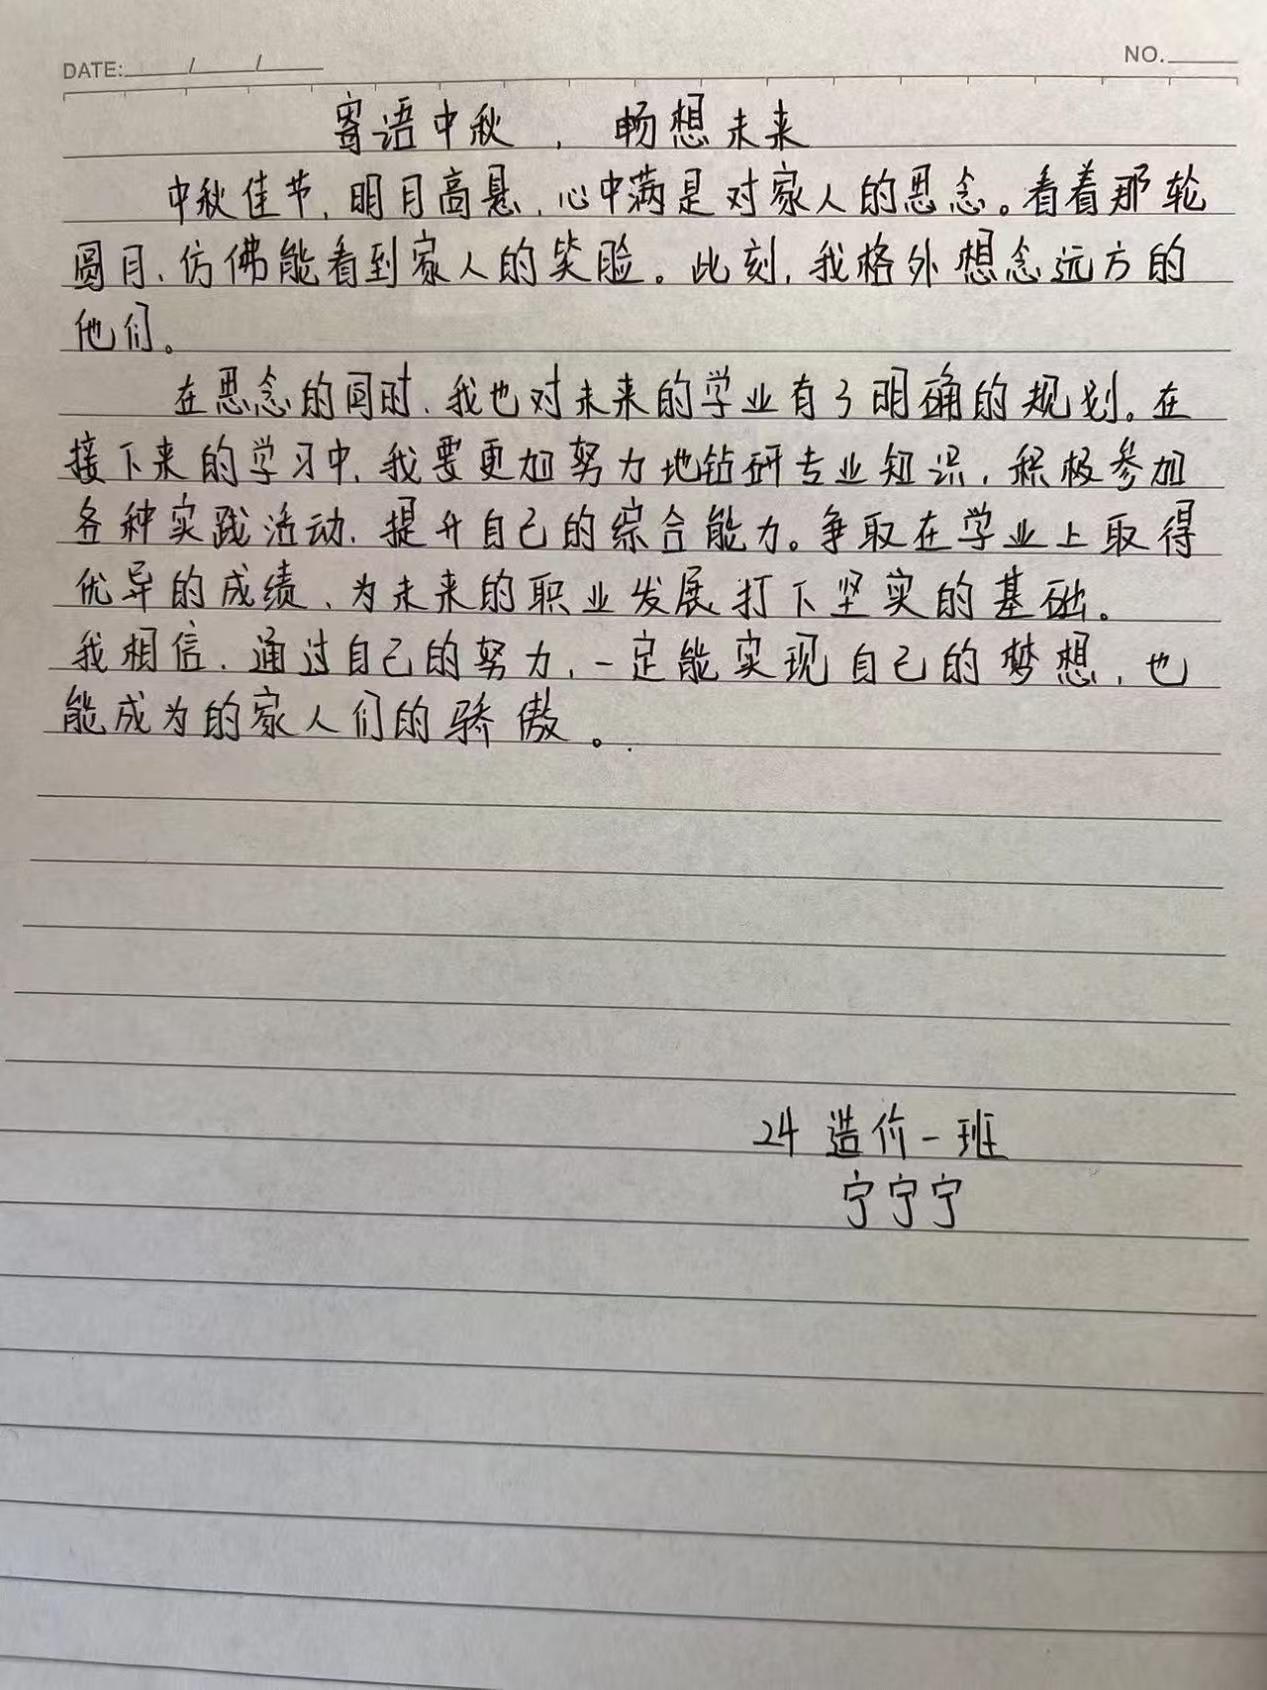 DATE: / /
NO.
寄语中秋，畅想未来
中秋佳节，明月高悬，心中满是对家人的思念。看着那轮
圆月，仿佛能看到家人的笑脸。此刻，我格外想念远方的
他们。
在思念的同时，我也对未来的学业有了明确的规划。在
接下来的学习中，我要更加努力地钻研专业知识，积极参加
各种实践活动，提升自己的综合能力。争取在学业上取得
优异的成绩，为未来的职业发展打下坚实的基础。
我相信，通过自己的努力，一定能实现自己的梦想，也
能成为的家人们的骄傲。
24造价一班
宁宁宁